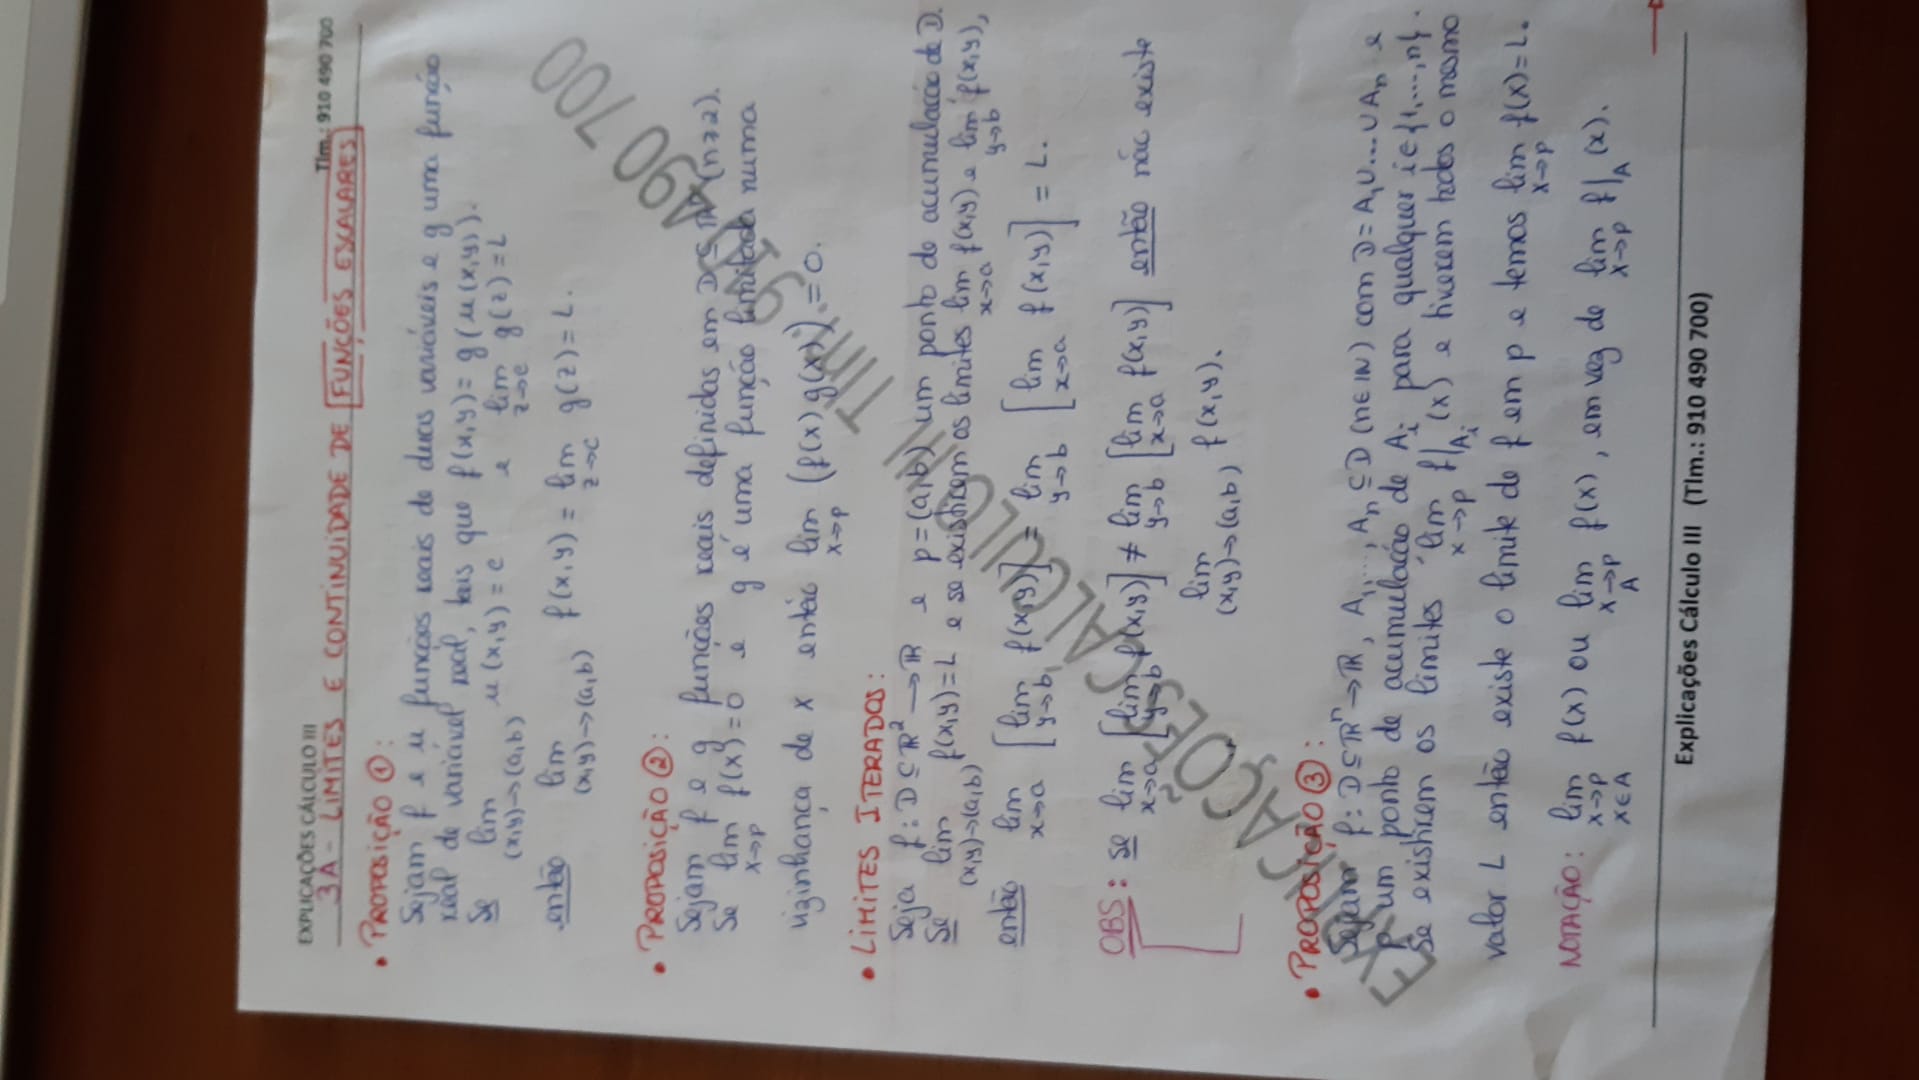 EXPLICAÇÕES CÁLCULO III
Tlm.: 910 490 700
3A - LIMITES E CONTINUIDADE DE FUNÇÕES ESCALARES
• PROPOSIÇÃO ①:
Sejam f e u funções reais de duas variáveis e g uma função
real de variável real, tais que f(x,y) = g(u(x,y)).
Se lim (x,y)→(a,b) u(x,y) = c e lim z→c g(z) = L
então lim (x,y)→(a,b) f(x,y) = lim z→c g(z) = L.
• PROPOSIÇÃO ②:
Sejam f e g funções reais definidas em D ⊆ ℝⁿ (n≥2).
Se lim x→p f(x) = 0 e g é uma função limitada numa
vizinhança de x então lim x→p (f(x) g(x)) = 0.
• LIMITES ITERADOS:
Seja f: D ⊆ ℝ² → ℝ e p = (a,b) um ponto de acumulação de D.
Se lim (x,y)→(a,b) f(x,y) = L e se existirem os limites lim x→a f(x,y) e lim y→b f(x,y),
então lim x→a [lim y→b f(x,y)] = lim y→b [lim x→a f(x,y)] = L.
OBS: se lim x→a [lim y→b f(x,y)] ≠ lim y→b [lim x→a f(x,y)] então não existe
lim (x,y)→(a,b) f(x,y).
• PROPOSIÇÃO ③:
Sejam f: D ⊆ ℝⁿ → ℝ, A₁,...,Aₙ ⊆ D (n ∈ ℕ) com D = A₁ ∪ ... ∪ Aₙ e
p um ponto de acumulação de Aᵢ para qualquer i ∈ {1,...,n}.
Se existirem os limites lim x→p f|Aᵢ (x) e tiverem todos o mesmo
valor L então existe o limite de f em p e temos lim x→p f(x) = L.
NOTAÇÃO: lim x→p x∈A f(x) ou lim x→p A f(x), em vez de lim x→p f|A (x).
Explicações Cálculo III (Tlm.: 910 490 700)
EXPLICAÇÕES CÁLCULO III Tlm.: 910 490 700